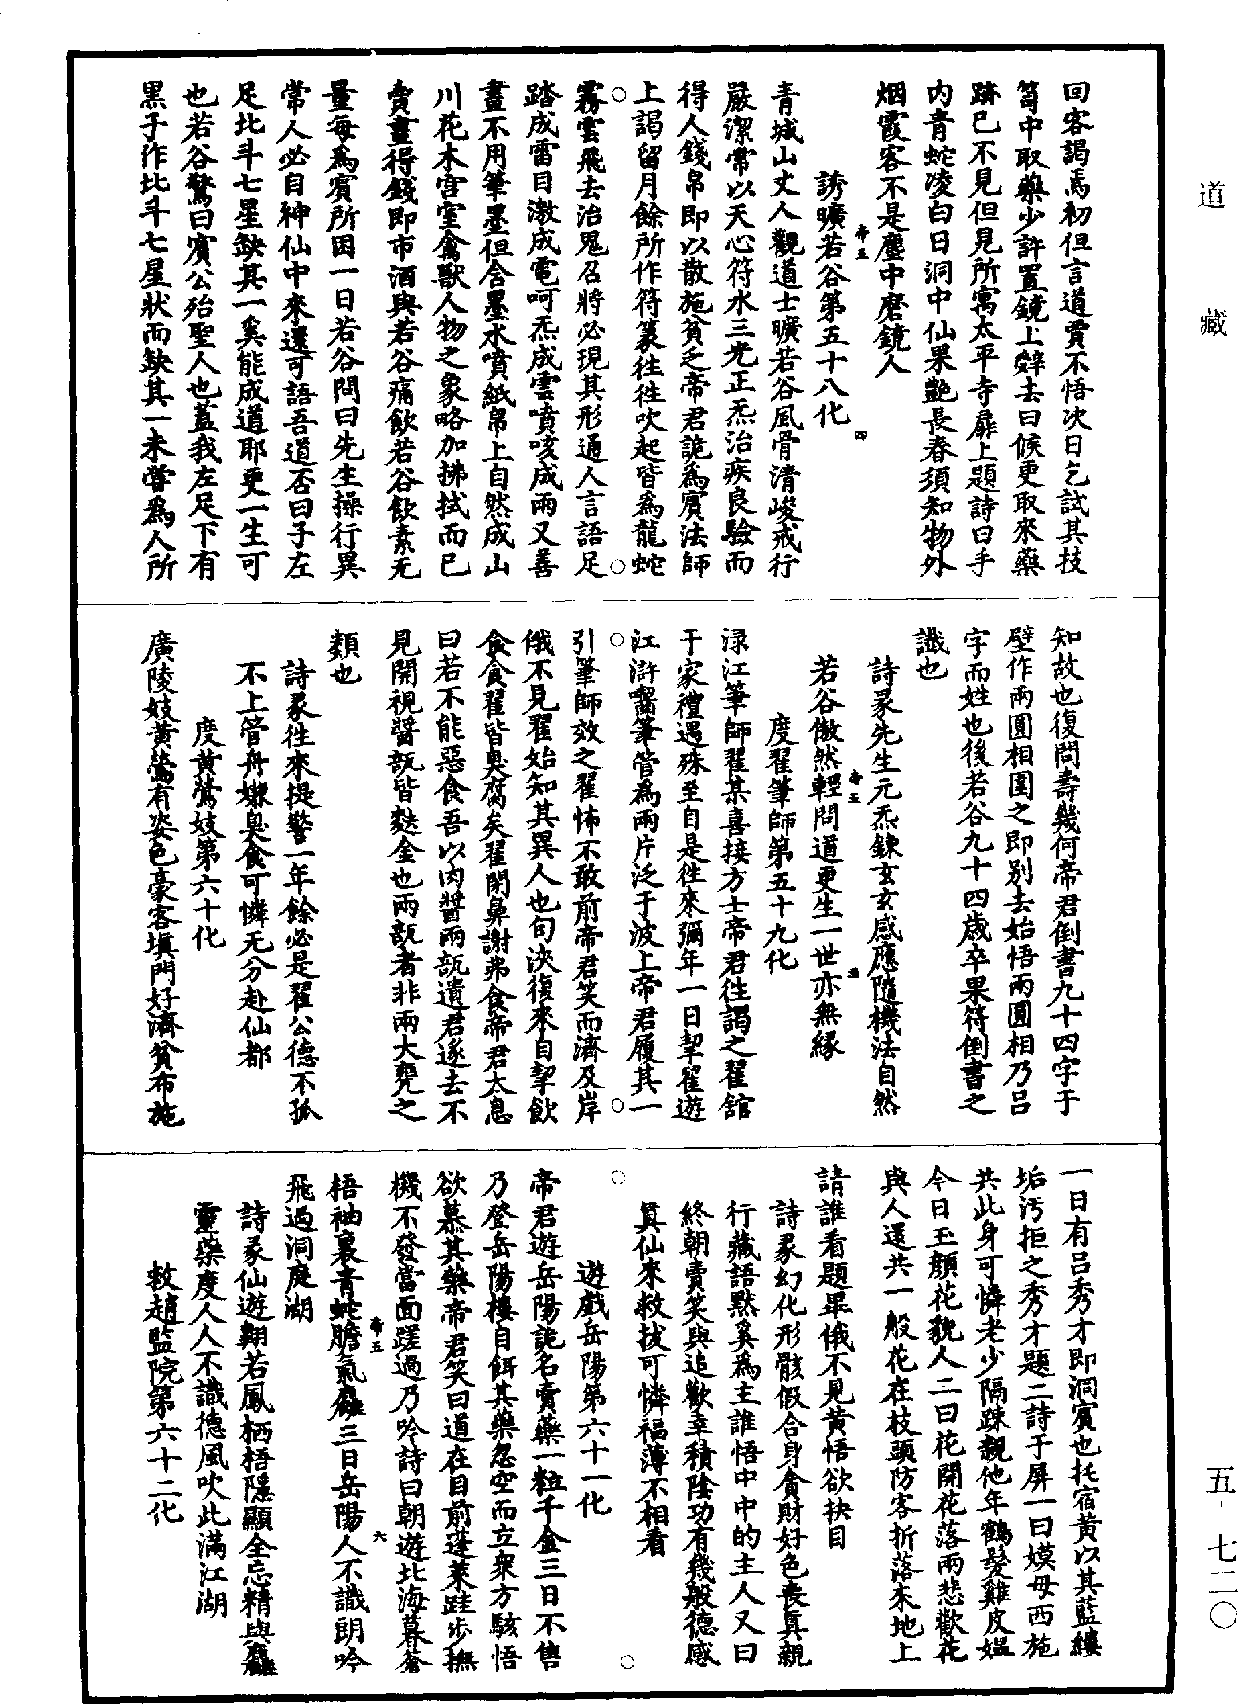 道藏
五-七二〇
回客謁焉初但言道賈不悟次日乞試其技
笥中取藥少許置鏡上辭去曰候更取來藥
跡已不見但見所寓太平寺扉上題詩曰手
内青蛇凌白日洞中仙果艶長春須知物外
烟霞客不是塵中磨鏡人
帝五
四
誘曠若谷第五十八化
青城山丈人觀道士曠若谷風骨清峻戒行
嚴潔常以天心符水三光正炁治疾良驗而
得人錢帛即以散施貧乏帝君詭爲賓法師
上謁留月餘所作符篆往往吹起皆爲龍蛇
霧雲飛去治鬼召將必現其形通人言語足
踏成雷目激成電呵炁成雲噴咳成雨又善
畫不用筆墨但含墨水噴紙帛上自然成山
川花木宫室禽獸人物之象略加拂拭而已
賣畫得錢即市酒與若谷痛飲若谷飲素无
量每爲賓所困一日若谷問曰先生操行異
常人必自神仙中來還可語吾道否曰子左
足北斗七星缺其一奚能成道耶更一生可
也若谷驚曰賓公殆聖人也蓋我左足下有
黑子作北斗七星狀而缺其一未嘗爲人所
知故也復問壽幾何帝君倒書九十四字于
壁作兩圓相圍之即别去始悟兩圓相乃吕
字而姓也後若谷九十四歲卒果符倒書之
讖也
詩彖先生元炁鍊玄玄感應隨機法自然
若谷傲然輕問道更生一世亦無緣
帝五
五
度翟筆師第五十九化
渌江筆師翟某喜接方士帝君往謁之翟舘
于家禮遇殊至自是往來彌年一日挈翟遊
江滸齧筆管爲兩片泛于波上帝君履其一
引筆師效之翟怖不敢前帝君笑而濟及岸
俄不見翟始知其異人也旬浹復來自挈飲
食食翟皆臭腐矣翟閉鼻謝弗食帝君太息
曰若不能惡食吾以肉醬兩瓿遺君遂去不
見開視醬瓿皆麩金也兩瓿者非兩大甕之
類也
詩彖往來提警一年餘必是翟公德不孤
不上管舟嫌臭食可憐无分赴仙都
度黄鶯妓第六十化
廣陵妓黄鶯有姿色豪客填門好濟貧布施
一日有吕秀才即洞賓也托宿黄以其藍縷
垢汚拒之秀才題二詩于屏一曰嫫母西施
共此身可憐老少隔疎親他年鶴髮雞皮媪
今日玉顔花貌人二曰花開花落兩悲歡花
與人還共一般花在枝頭防客折落來地上
請誰看題畢俄不見黄悟欲抉目
詩彖幻化形骸假合身貪財好色喪真親
行藏語默奚爲主誰悟中中的主人又曰
終朝賣笑與追歡幸積陰功有幾般德感
眞仙來救拔可憐福薄不相看
遊戲岳陽第六十一化
帝君遊岳陽詭名賣藥一粒千金三日不售
乃登岳陽樓自餌其藥忽空而立衆方駭悟
欲慕其藥帝君笑曰道在目前蓬萊跬步撫
機不發當面蹉過乃吟詩曰朝遊北海暮蒼
梧袖裏青蛇膽氣麤三日岳陽人不識朗吟
帝五
六
飛過洞庭湖
詩彖仙遊翱若鳳栖梧隱顯全忘精與麤
靈藥度人人不識德風吹此滿江湖
救趙監院第六十二化